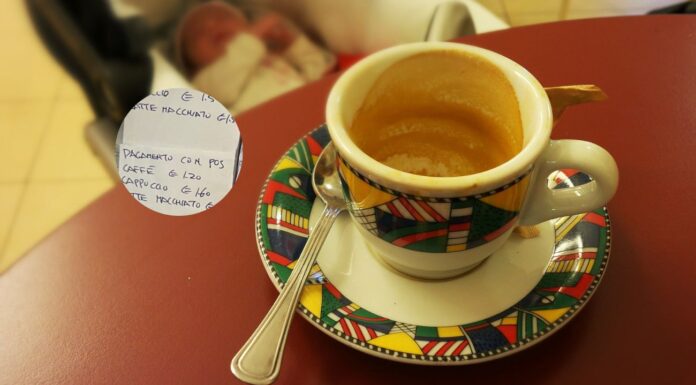 CCIO € 1.5
ATTE MACCHIATO €
PAGAMENTO CON POS
CAFFÈ € 1.20
CAPPUCCIO € 1.60
TTE MACCHIATO €